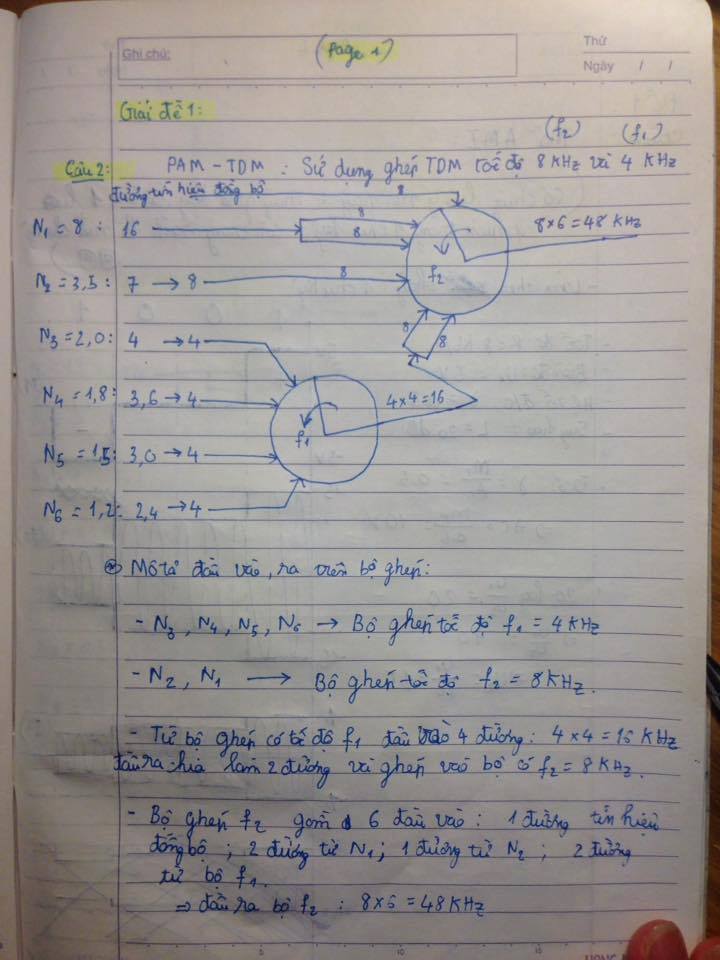 Ghi chú:
(Page 1)
Thứ
Ngày / /
Giải đề 1:
(f2) (f1)
Câu 2: PAM-TDM: Sử dụng ghép TDM tốc độ 8 KHz và 4 KHz
đường tín hiệu đồng bộ 8
N1 = 8 : 16 8 8 8×6=48 KHz
f2
N2 = 3,5 : 7 → 8 8
8 8
N3 = 2,0 : 4 → 4
N4 = 1,8 : 3,6 → 4 4×4=16
f1
N5 = 1,5 : 3,0 → 4
N6 = 1,2 : 2,4 → 4
Mô tả đầu vào, ra trên bộ ghép:
- N3, N4, N5, N6 → Bộ ghép tốc độ f1 = 4 KHz
- N2, N1 → Bộ ghép tốc độ f2 = 8 KHz.
- Từ bộ ghép có tốc độ f1 đầu vào 4 đường: 4×4 = 16 KHz
đầu ra chia làm 2 đường và ghép vào bộ có f2 = 8 KHz.
- Bộ ghép f2 gồm 6 đầu vào: 1 đường tín hiệu
đồng bộ; 2 đường từ N1; 1 đường từ N2; 2 đường
từ bộ f1.
⇒ đầu ra bộ f2 : 8×6 = 48 KHz
5
10
15